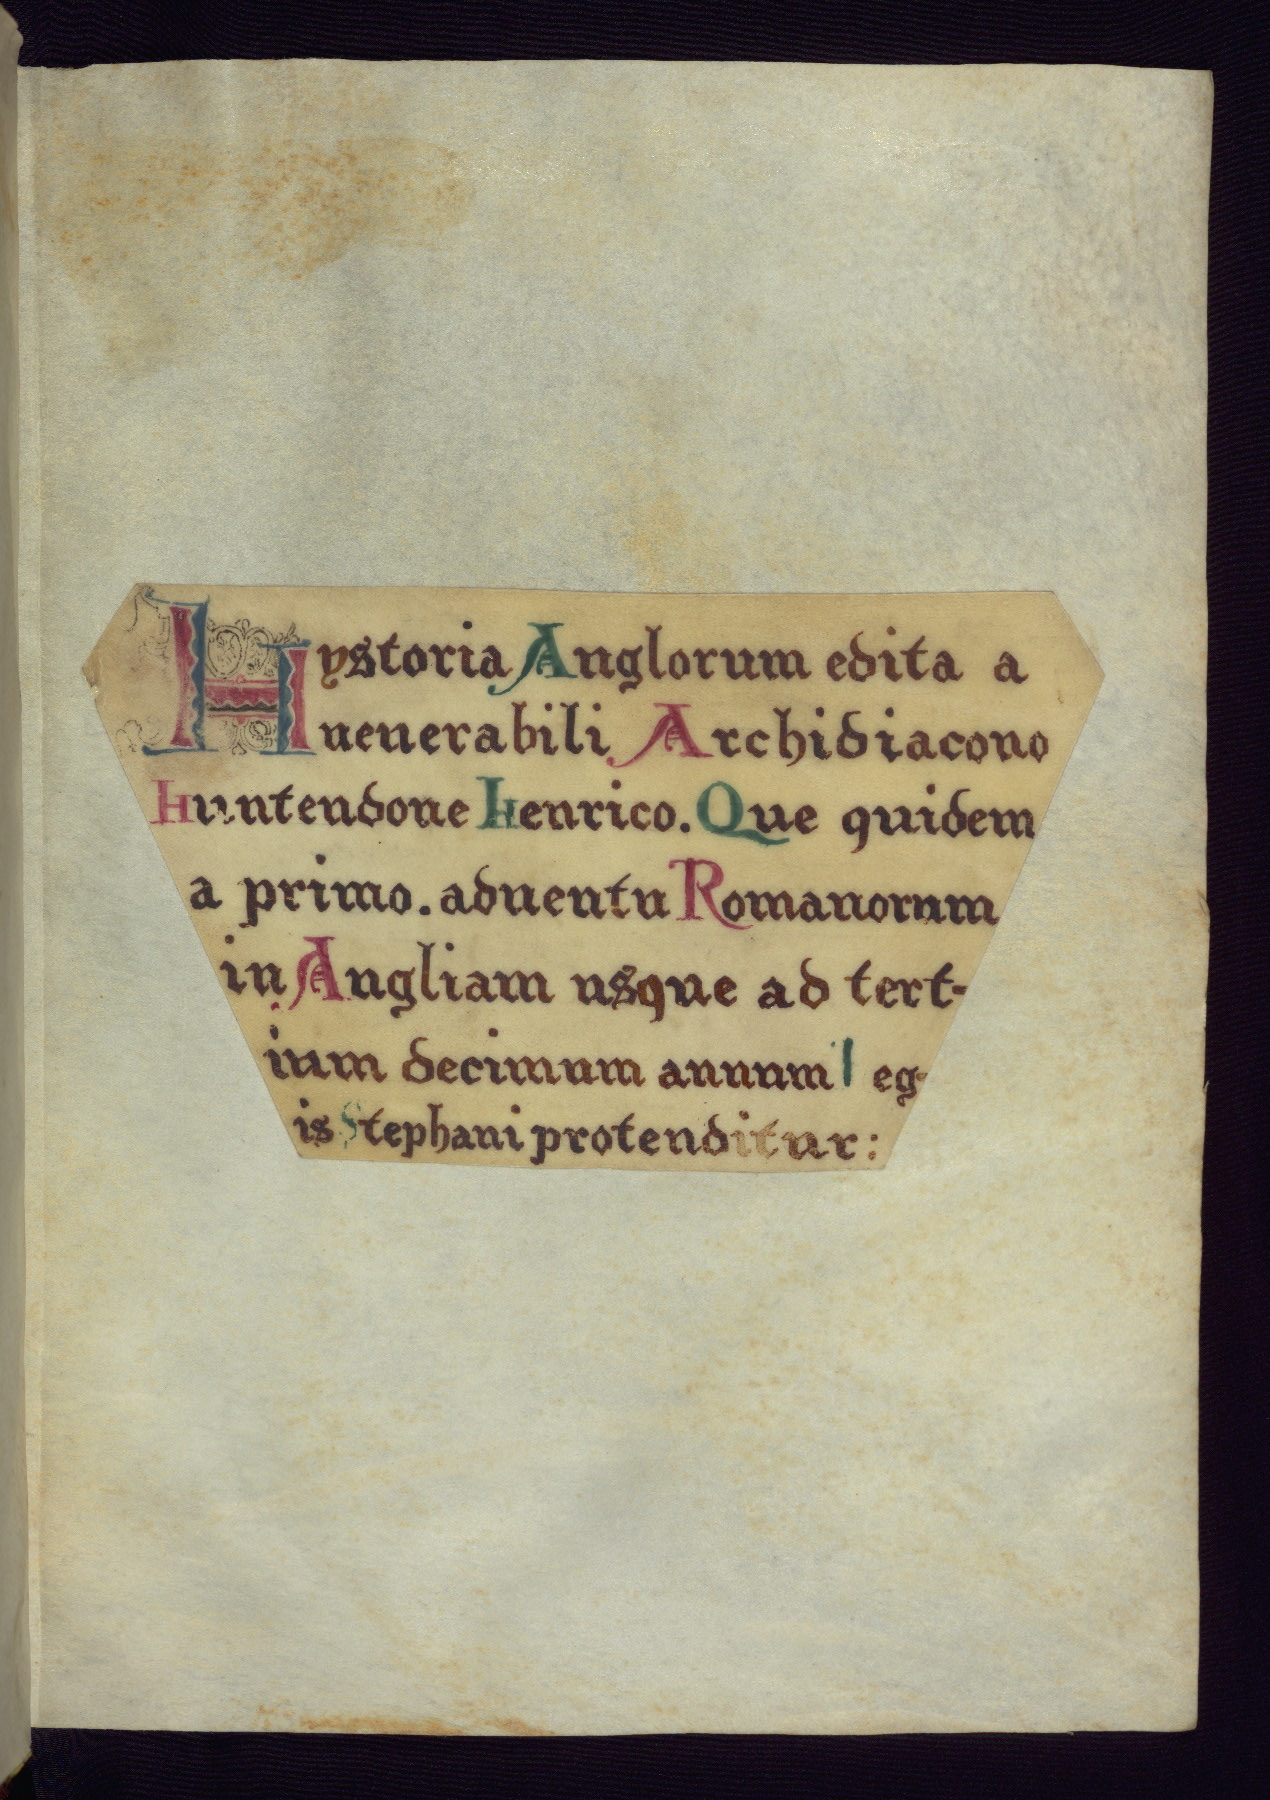 Hystoria Anglorum edita a
uenerabili Archidiacono
Huntendone Henrico. Que quidem
a primo. aduentu Romanorum
in Angliam usque ad tert-
ium decimum annum eg-
is Stephani protenditur: